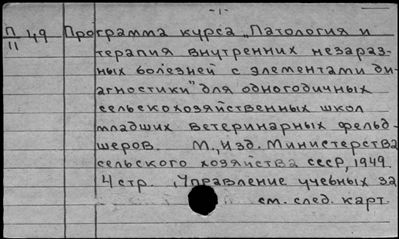 -1-
П/11 49 Программа курса „Патология и
терапия внутренних незараз-
ных болезней с элементами ди-
агностики" для одногодичных
сельскохозяйственных школ
младших ветеринарных фельд-
шеров. М., Изд. Министерства
сельского хозяйства СССР, 1949.
4 стр. (Управление учебных за
см. след. карт.